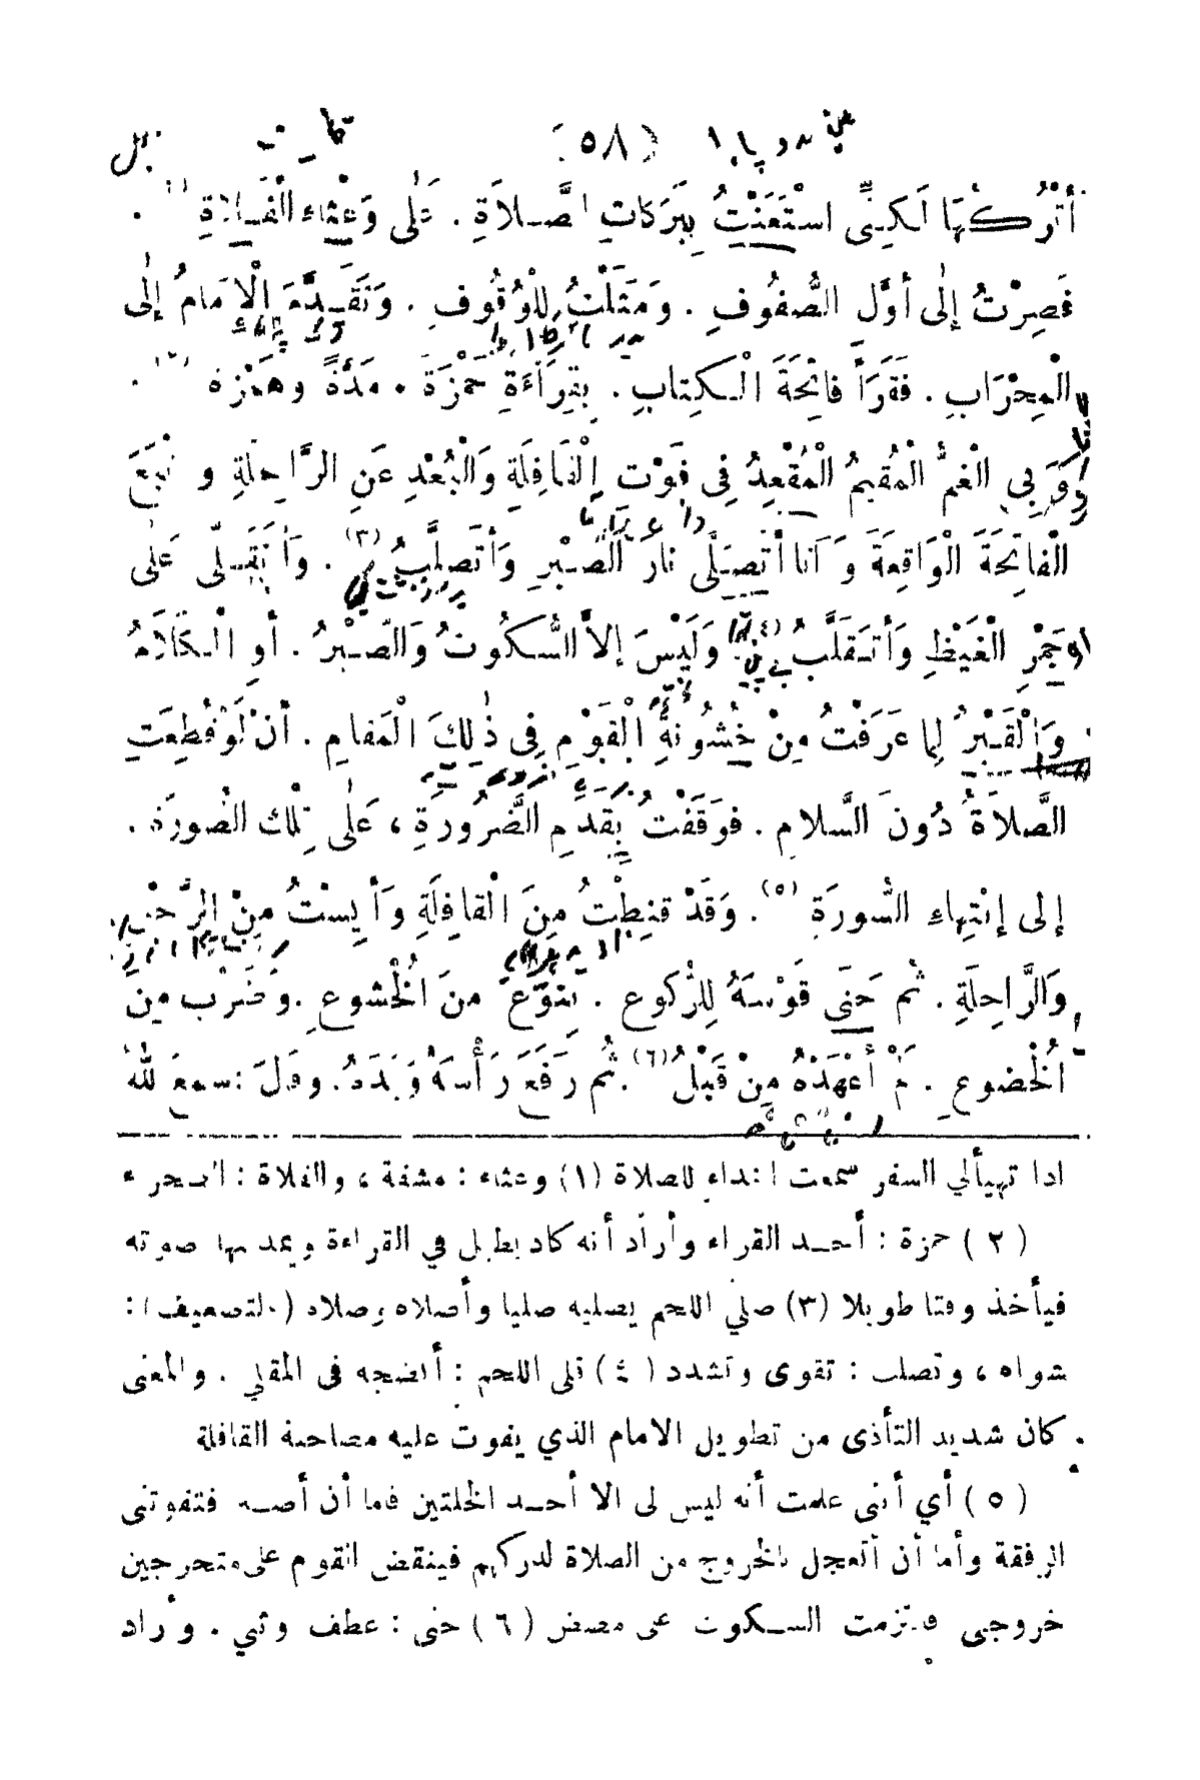 (٥٨)
أَتْرُكُهَا لَكِنِّي اسْتَعَنْتُ بِبَرَكَاتِ الصَّلاَةِ . عَلَى وَعْثَاءِ الْفَلاَةِ (١) .
فَصِرْتُ إِلَى أَوَّلِ الصُّفُوفِ . وَمَثَلْتُ لِلْوُقُوفِ . وَتَقَدَّمَ الْإِمَامُ إِلَى
الْمِحْرَابِ . فَقَرَأَ فَاتِحَةَ الْكِتَابِ . بِقِرَاءَةِ حَمْزَةَ . مَدَّةً وهَمْزَة (٢) .
وَبِي الْغَمُّ الْمُقِيمُ الْمُقْعِدُ فِي فَوْتِ الْقَافِلَةِ وَالْبُعْدِ عَنِ الرَّاحِلَةِ و تْبَعَ
الْفَاتِحَةَ الْوَاقِعَةَ وَ أَنا أَتَصَلَّى نَارَ الصَّبْرِ وَأَتَصَلَّبُ (٣) . وَأَتَقَلَّى عَلَى
جَمْرِ الْغَيْظِ وَأَتَقَلَّبُ (٤) وَلَيْسَ إِلاَّ السُّكُوتُ وَالصَّبْرُ . أَوِ الْكَلاَمُ
وَالْقَبْرُ لِما عَرَفْتُ مِنْ خُشُونَةِ الْقَوْمِ فِي ذٰلِكَ الْمَقامِ . أَنْ لَوْ قُطِعَتِ
الصَّلاَةُ دُونَ السَّلامِ . فوَقَفْتُ بِقَدَمِ الضَّرُورَةِ ، عَلَى تِلْكَ الصُّورَةِ .
إلى إنْتِهاءِ السُّورَةِ (٥) . وَقَدْ قَنِطْتُ مِنَ الْقافِلَةِ وَأَيِسْتُ مِنَ الرَّحْلِ
وَالرَّاحِلَةِ . ثُم حَنَى قَوْسَهُ لِلرُّكوعِ . بِنَوْعٍ مِنَ الْخُشوعِ . وضَرْبٍ مِنَ
الْخُضوعِ . لَمْ أَعْهَدْهُ مِنْ قَبْلُ (٦) . ثُم رَفَعَ رَأْسَهُ وَيَدَهُ . وقَالَ : سمعَ للهُ
اذا تهيأ لي السفر سمعت النداء للصلاة (١) وعثاء : مشقة ، والفلاة : الصحراء
( ٢ ) حمزة : أحد القراء وأراد أنه كاد يطيل في القراءة ويمد بها صوته
فيأخذ وقتا طويلا (٣) صلي اللحم يصليه صليا وأصلاه وصلاه (بالتضعيف) :
شواه ، وتصلب : تقوى وتشدد ( ٤ ) قلى اللحم : أنضجه فى المقلي . والمعنى
كان شديد التأذى من تطويل الامام الذي يفوت عليه مصاحبة القافلة
( ٥ ) أي أننى علمت أنه ليس لى الا أحد الخلتين فاما أن أصبر فتفوتنى
الرفقة وأما أن أتعجل بالخروج من الصلاة لدركهم فينقض القوم على متحرجين
خروجى فالتزمت السكوت على مضض ( ٦ ) حنى : عطف وثني . وأراد